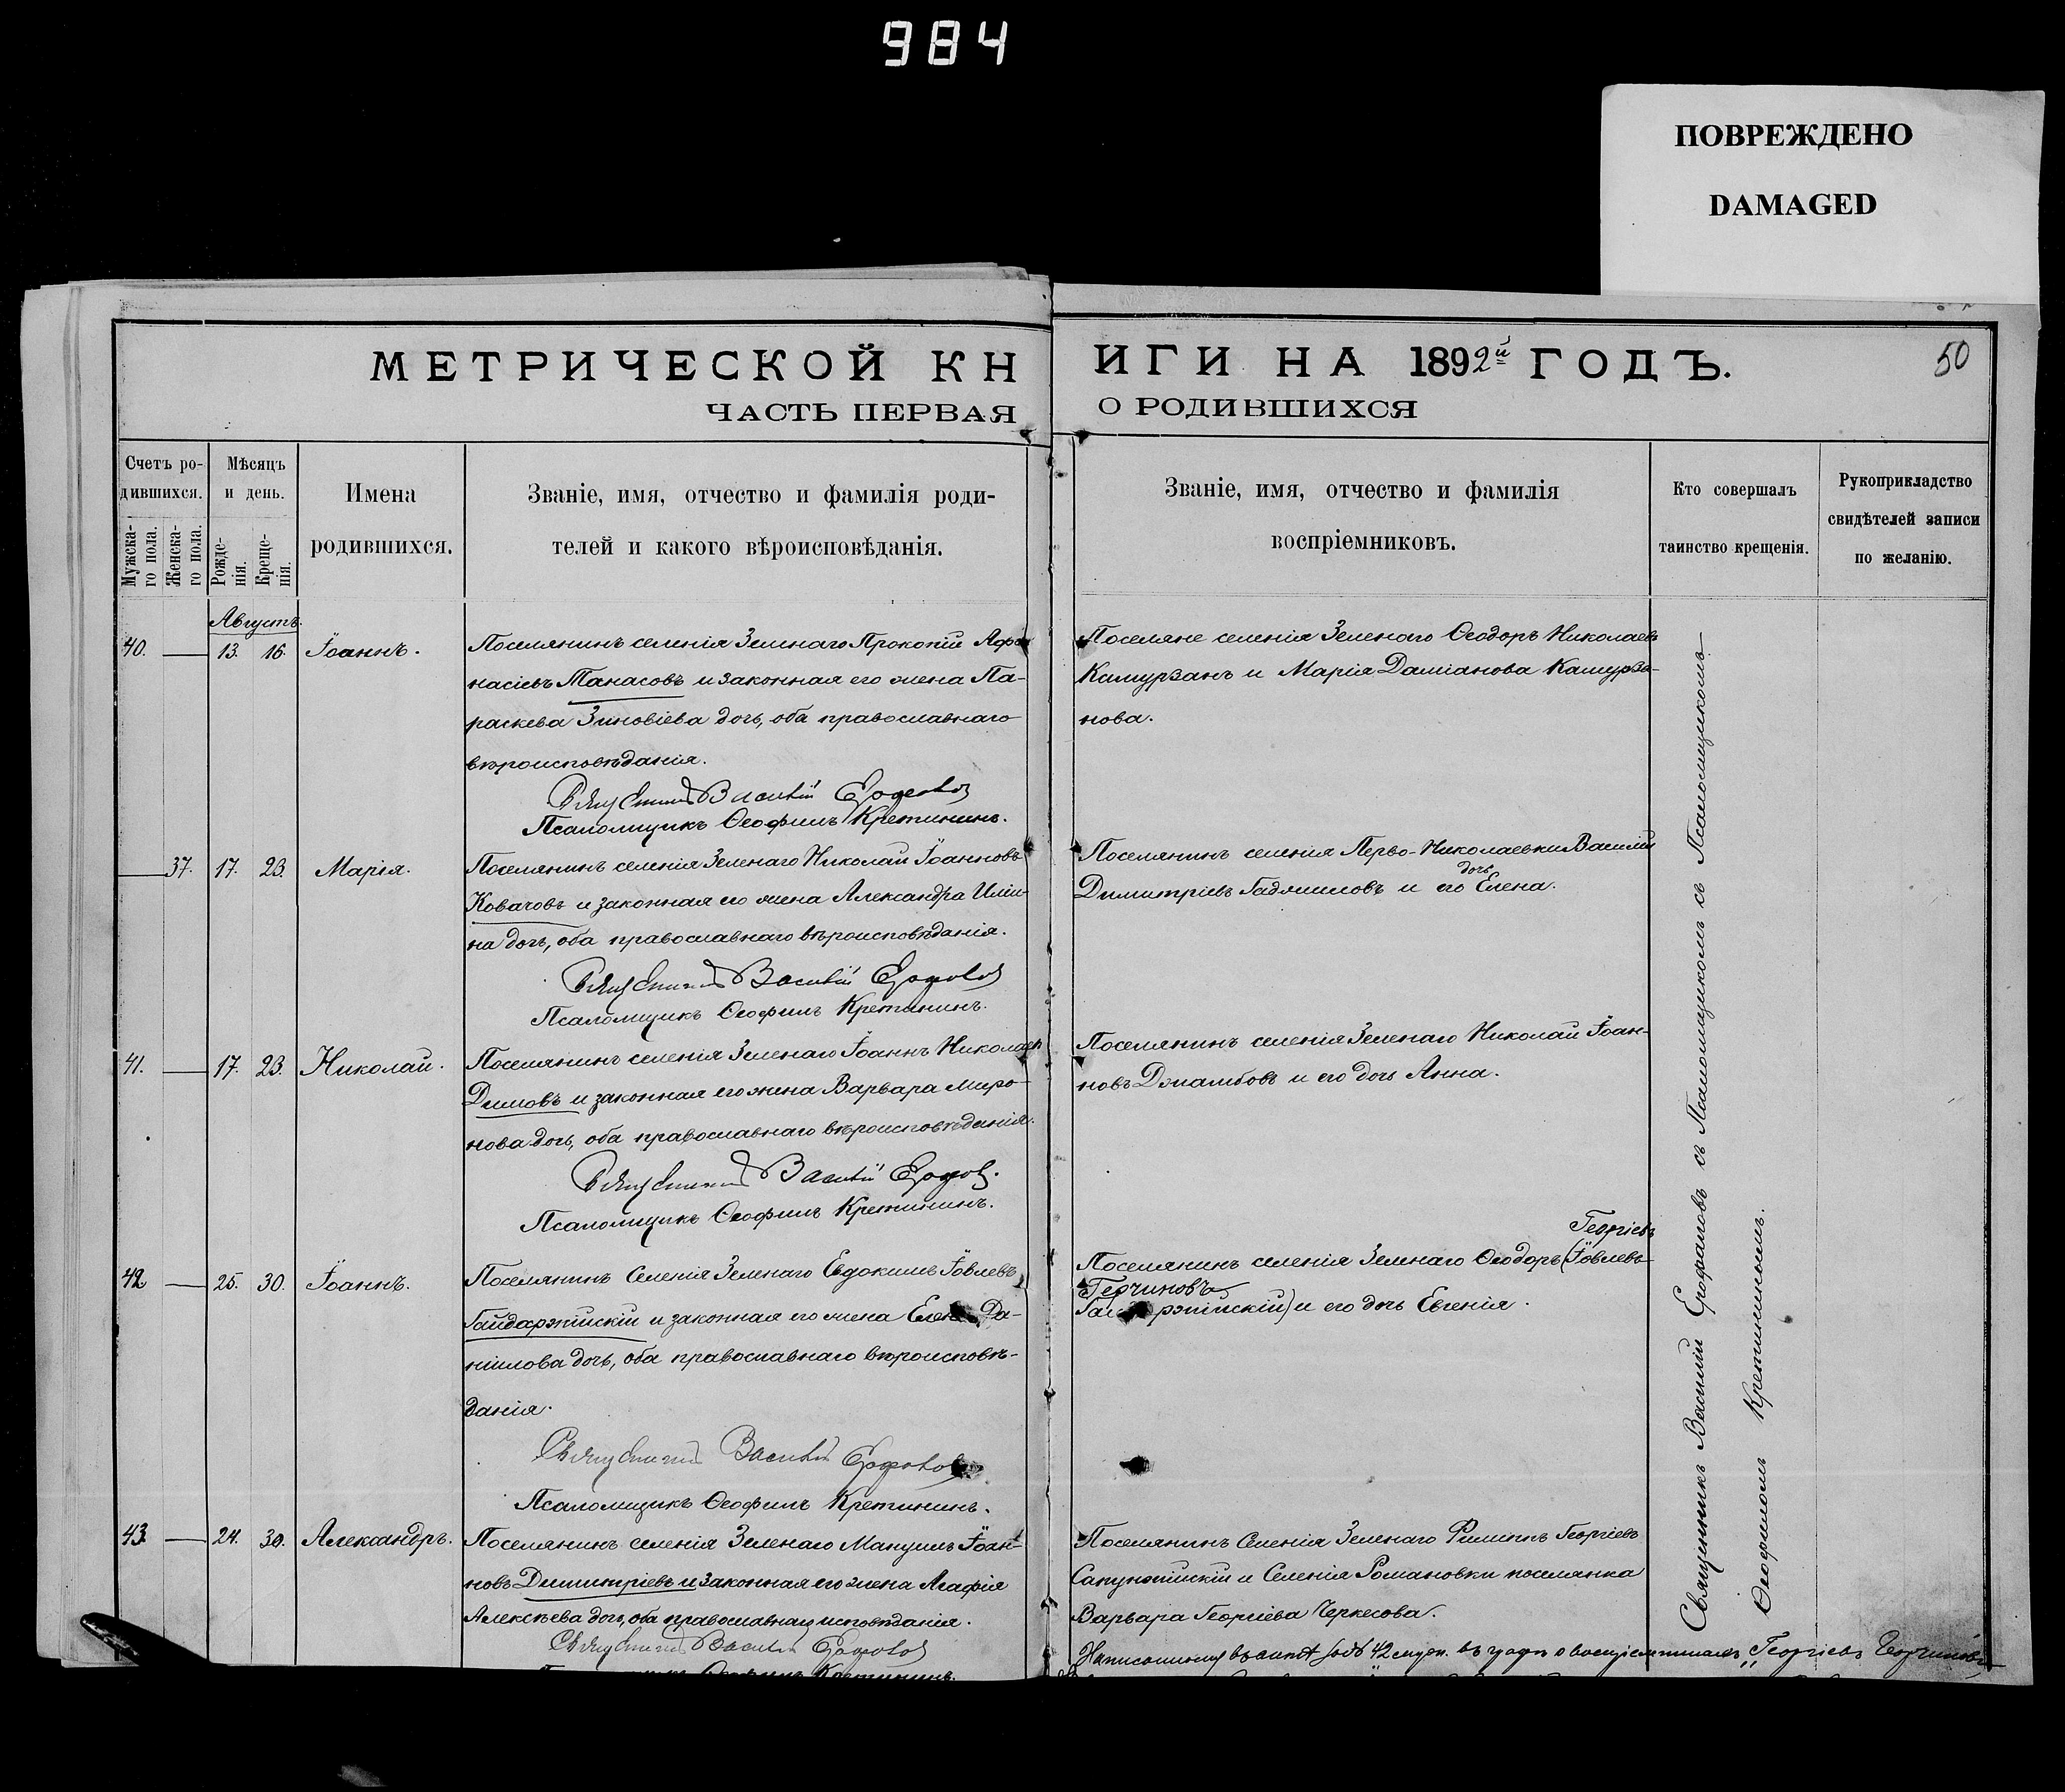 984
ПОВРЕЖДЕНО
DAMAGED
МЕТРИЧЕСКОЙ КНИГИ НА 1892й ГОДЪ.
50
ЧАСТЬ ПЕРВАЯ О РОДИВШИХСЯ
Счетъ ро-
дившихся.
Мужска-
го пола.
Женска-
го пола.
Мѣсяцъ
и день.
Рожде-
нія.
Креще-
нія.
Имена
родившихся.
Званіе, имя, отчество и фамилія роди-
телей и какого вѣроисповѣданія.
Званіе, имя, отчество и фамилія
воспріемниковъ.
Кто совершалъ
таинство крещенія.
Рукоприкладство
свидѣтелей записи
по желанію.
Августъ
40. 13. 16. Іоаннъ.
Поселянинъ селенія Зеленаго Прокопій Афа
насіевъ Танасовъ и законная его жена Па-
раскева Зиновіева дочь, оба православнаго
вѣроисповѣданія.
Священникъ Василій Ерофаловъ
Псаломщикъ Ѳеофилъ Кретининъ.
Поселяне селенія Зеленаго Ѳеодоръ Николаевъ
Камурзанъ и Марія Даміанова Камурза-
нова.
37. 17. 23. Марія.
Поселянинъ селенія Зеленаго Николай Іоанновъ
Ковачовъ и законная его жена Александра Иліи-
на дочь, оба православнаго вѣроисповѣданія.
Священникъ Василій Ерофаловъ
Псаломщикъ Ѳеофилъ Кретининъ.
Поселянинъ селенія Перво-Николаевки Василій
дочь
Димитріевъ и его Елена.
41. 17. 23. Николай.
Поселянинъ селенія Зеленаго Іоаннъ Николаевъ
Димовъ и законная его жена Варвара Миро-
нова дочь, оба православнаго вѣроисповѣданія.
Священникъ Василій Ерофаловъ
Псаломщикъ Ѳеофилъ Кретининъ.
Поселянинъ селенія Зеленаго Николай Іоан-
новъ Джамбовъ и его дочь Анна.
42 25. 30. Іоаннъ.
Поселянинъ Селенія Зеленаго Евдокимъ Іовлевъ
Гайдаржійскій и законная его жена Елена Да-
ніилова дочь, оба православнаго вѣроисповѣ-
данія.
Священникъ Василій Ерофаловъ
Псаломщикъ Ѳеофилъ Кретининъ.
Георгіевъ
Поселянинъ селенія Зеленаго Ѳеодоръ (Іовлевъ
Герчиновъ
Гай ржійскій) и его дочь Евгенія.
43. 24. 30. Александръ.
Поселянинъ селенія Зеленаго Мануилъ Іоан-
новъ Димитріевъ и законная его жена Агафія
Алексѣева дочь, оба православнаго исповѣданія.
Священникъ Василій Ерофаловъ
Ѳеофилъ Кретининъ.
Поселянинъ Селенія Зеленаго Филиппъ Георгіевъ
и Селенія Романовки поселянка
Варвара Георгіева Черкесова.
42 муж. въ графѣ о воспріемникахъ „Георгіевъ Герчиновъ
Священникъ Василій Ерофаловъ съ Псаломщикомъ съ Псаломщикомъ
Ѳеофиломъ Кретининымъ.